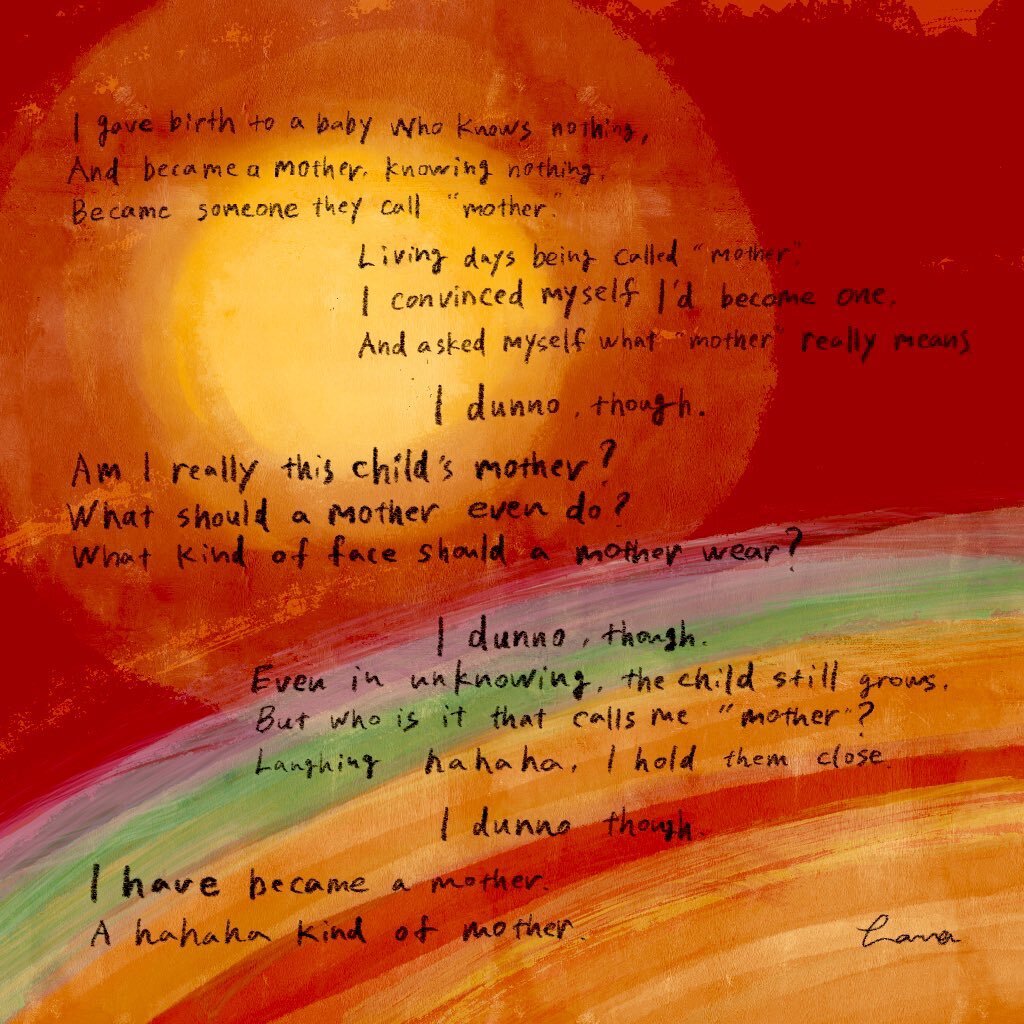 I gave birth to a baby who knows nothing,
And became a mother, knowing nothing.
Became someone they call "mother."
Living days being called "mother",
I convinced myself I'd become one.
And asked myself what "mother" really means
I dunno, though.
Am I really this child's mother?
What should a mother even do?
What kind of face should a mother wear?
I dunno, though.
Even in unknowing, the child still grows.
But who is it that calls me "mother"?
Laughing hahaha, I hold them close.
I dunno though.
I have became a mother.
A hahaha kind of mother.